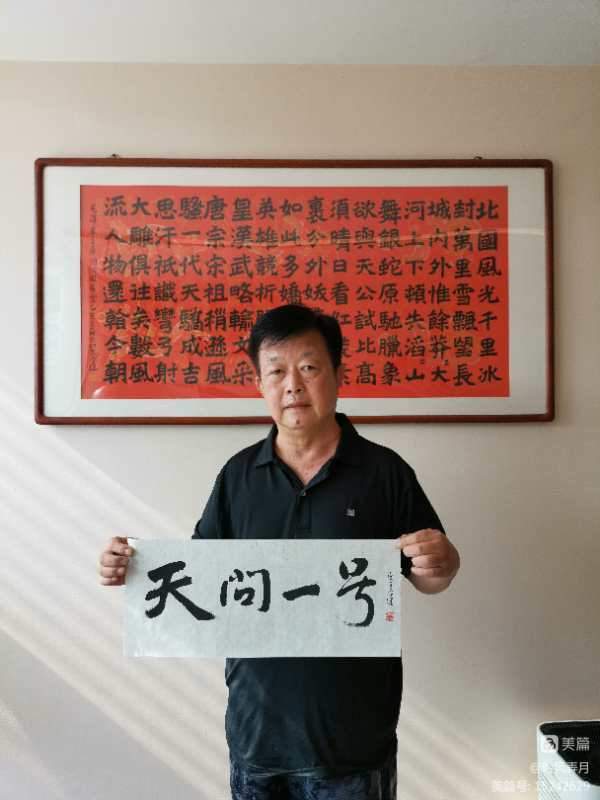 北國風光千里冰
封萬里雪飄望長
城内外惟餘莽々大
河上下頓失滔々山
舞銀蛇原馳臘象
欲與天公試比高
須晴日看紅
裹分外妖
如此多嬌
英雄競折
皇漢武略輸文采
唐宗宋祖稍遜風
騷一代天驕成吉
思汗祇識彎弓射
大雕俱往矣數風
流人物還看今朝
天問一号
美篇
美篇号: 15242629